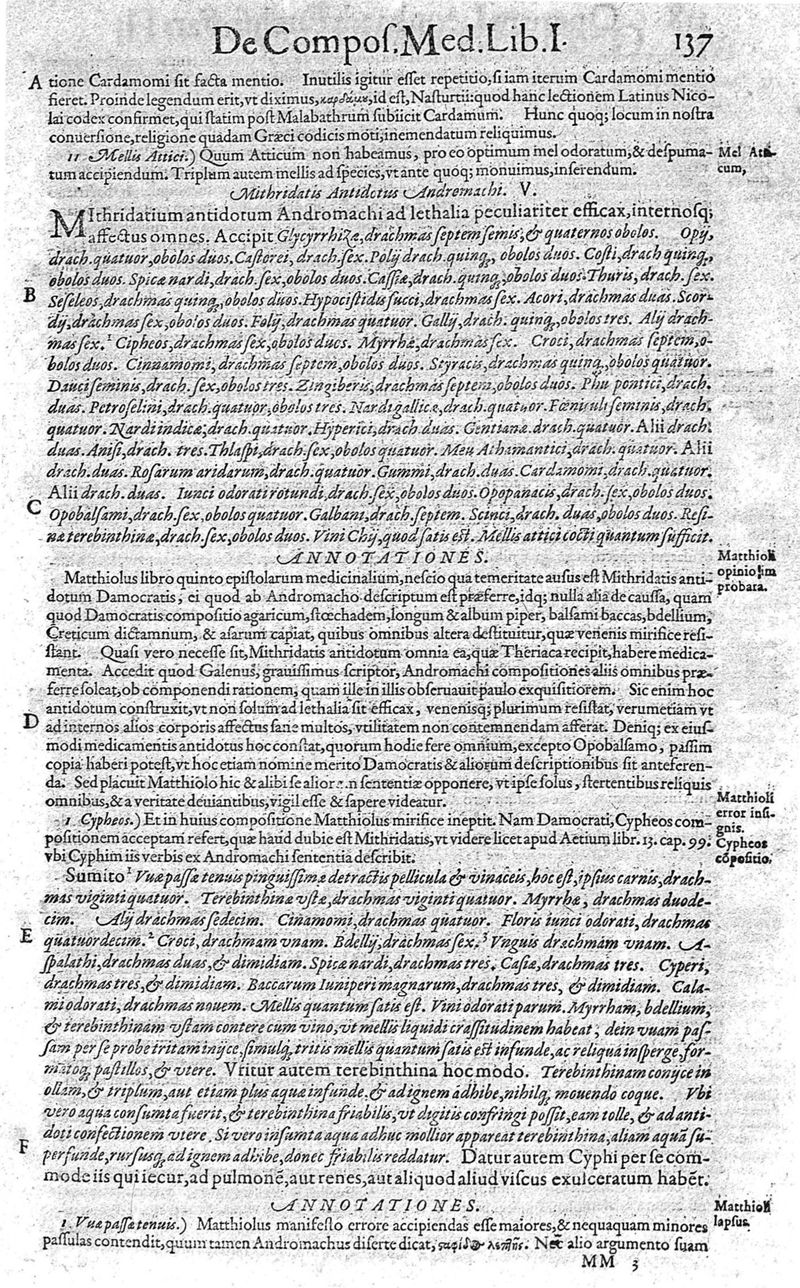 De Compos. Med. Lib. I. 137
A tione Cardamomi sit facta mentio. Inutilis igitur esset repetitio, si iam iterum Cardamomi mentio
fieret. Proinde legendum erit, vt diximus, καρδάμου, id est, Nasturtii: quod hanc lectionem Latinus Nico-
lai codex confirmet, qui statim post Malabathrum subiicit Cardamum. Hunc quoq; locum in nostra
conuersione, religione quadam Græci codicis moti, inemendatum reliquimus.
11 Mellis Attici.) Quum Atticum non habeamus, pro eo optimum mel odoratum, & despuma- Mel Atti-
tum accipiendum. Triplum autem mellis ad species, vt ante quoq; monuimus, inserendum. cum,
Mithridatis Antidotus Andromachi. V.
MIthridatium antidotum Andromachi ad lethalia peculiariter efficax, internosq;
affectus omnes. Accipit Glycyrrhizæ, drachmas septem semis, & quaternos obolos. Opij,
drach. quatuor, obolos duos. Castorei, drach. sex. Polij drach. quinq, obolos duos. Costi, drach quinq,
obolos duos. Spicæ nardi, drach. sex, obolos duos. Cassiæ, drach. quinq, obolos duos. Thuris, drach. sex.
B Seseleos, drachmas quinq, obolos duos. Hypocistidis succi, drachmas sex. Acori, drachmas duas. Scor-
dij, drachmas sex, obolos duos. Folij, drachmas quatuor. Gallij, drach. quinq, obolos tres. Alij drach-
mas sex. 1 Cipheos, drachmas sex, obolos duos. Myrrhæ, drachmas sex. Croci, drachmas septem, o-
bolos duos. Cinnamomi, drachmas septem, obolos duos. Styracis, drachmas quinq, obolos quatuor.
Dauci seminis, drach. sex, obolos tres. Zingiberis, drachmas septem, obolos duos. Phu pontici, drach.
duas. Petroselini, drach. quatuor, obolos tres. Nardi gallicæ, drach. quatuor. Fœniculi seminis, drach.
quatuor. Nardi indicæ, drach. quatuor. Hyperici, drach. duas. Gentianæ. drach. quatuor. Alii drach.
duas. Anisi, drach. tres. Thlaspi, drach. sex, obolos quatuor. Meu Athamantici, drach. quatuor. Alii
drach. duas. Rosarum aridarum, drach. quatuor. Gummi, drach. duas. Cardamomi, drach. quatuor.
Alii drach. duas. Iunci odorati rotundi, drach. sex, obolos duos. Opopanacis, drach. sex, obolos duos.
C Opobalsami, drach. sex, obolos quatuor. Galbani, drach. septem. Scinci, drach. duas, obolos duos. Resi-
næ terebinthinæ, drach. sex, obolos duos. Vini Chij, quod satis est. Mellis attici cocti quantum sufficit.
ANNOTATIONES. Matthioli
Matthiolus libro quinto epistolarum medicinalium, nescio qua temeritate ausus est Mithridatis anti- opinio im
dotum Damocratis, ei quod ab Andromacho descriptum est præferre, idq; nulla alia de caussa, quam probata.
quod Damocratis compositio agaricum, stœchadem, longum & album piper, balsami baccas, bdellium,
Creticum dictamnum, & asarum capiat, quibus omnibus altera destituitur, quæ venenis mirifice resi-
stant. Quasi vero necesse sit, Mithridatis antidotum omnia ea, quæ Theriaca recipit, habere medica-
menta. Accedit quod Galenus, grauissimus scriptor, Andromachi compositiones aliis omnibus præ-
ferre soleat, ob componendi rationem, quam ille in illis obseruauit paulo exquisitiorem. Sic enim hoc
antidotum construxit, vt non solum ad lethalia sit efficax, venenisq; plurimum resistat, verumetiam vt
D ad internos alios corporis affectus sane multos, vtilitatem non contemnendam afferat. Deniq; ex eius-
modi medicamentis antidotus hoc constat, quorum hodie fere omnium, excepto Opobalsamo, passim
copia haberi potest, vt hoc etiam nomine merito Damocratis & aliorum descriptionibus sit anteferen-
da. Sed placuit Matthiolo hic & alibi se alior sententiæ opponere, vt ipse solus, stertentibus reliquis
omnibus, & a veritate deuiantibus, vigil esse & sapere videatur. Matthioli
1. Cypheos.) Et in huius compositione Matthiolus mirifice ineptit. Nam Damocrati, Cypheos com- error insi-
positionem acceptam refert, quæ haud dubie est Mithridatis, vt videre licet apud Aetium libr. 13. cap. 99. gnis.
vbi Cyphim iis verbis ex Andromachi sententia describit. Cypheos
Sumito 1 Vuæ passæ tenuis pinguissimæ detractis pellicula & vinaceis, hoc est, ipsius carnis, drach- cōpositio.
mas viginti quatuor. Terebinthinæ vstæ, drachmas viginti quatuor. Myrrhæ, drachmas duode-
cim. Alij drachmas sedecim. Cinamomi, drachmas quatuor. Floris iunci odorati, drachmas
E quatuordecim. 2 Croci, drachmam vnam. Bdellij, drachmas sex. 3 Vnguis drachmam vnam. A-
spalathi, drachmas duas, & dimidiam. Spicæ nardi, drachmas tres. Casiæ, drachmas tres. Cyperi,
drachmas tres, & dimidiam. Baccarum Iuniperi magnarum, drachmas tres, & dimidiam. Cala-
mi odorati, drachmas nouem. Mellis quantum satis est. Vini odorati parum. Myrrham, bdellium,
& terebinthinam vstam contere cum vino, vt mellis liquidi crassitudinem habeat, dein vuam pas-
sam per se probe tritam inijce, simulq, tritis mellis quantum satis est infunde, ac reliqua insperge, for-
matoq, pastillos, & vtere. Vritur autem terebinthina hoc modo. Terebinthinam conijce in
ollam, & triplum, aut etiam plus aquæ infunde, & ad ignem adhibe, nihilq, mouendo coque. Vbi
vero aqua consumta fuerit, & terebinthina friabilis, vt digitis confringi possit, eam tolle, & ad anti-
doti confectionem vtere. Si vero insumta aqua adhuc mollior appareat terebinthina, aliam aquā su-
F perfunde, rursusq, ad ignem adhibe, donec friabilis reddatur. Datur autem Cyphi per se com-
mode iis qui iecur, ad pulmonē, aut renes, aut aliquod aliud viscus exulceratum habēt.
ANNOTATIONES. Matthioli
1. Vuæ passæ tenuis.) Matthiolus manifesto errore accipiendas esse maiores, & nequaquam minores lapsus.
passulas contendit, quum tamen Andromachus diserte dicat, λεπτῆς. Nec alio argumento suam
MM 3